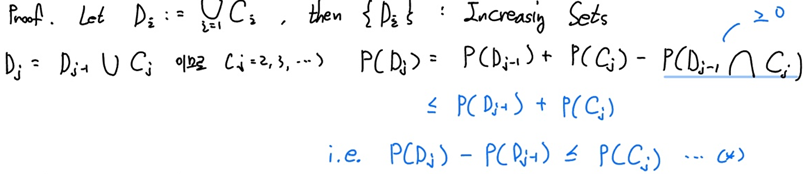 Proof. Let D_i := ⋃_{i=1} C_i , then {D_i} : Increasing Sets
≥ 0
D_j = D_{j-1} ∪ C_j 이므로 (j=2, 3, ⋯) P(D_j) = P(D_{j-1}) + P(C_j) - P(D_{j-1} ⋂ C_j)
≤ P(D_{j-1}) + P(C_j)
i.e. P(D_j) - P(D_{j-1}) ≤ P(C_j) ⋯ (*)